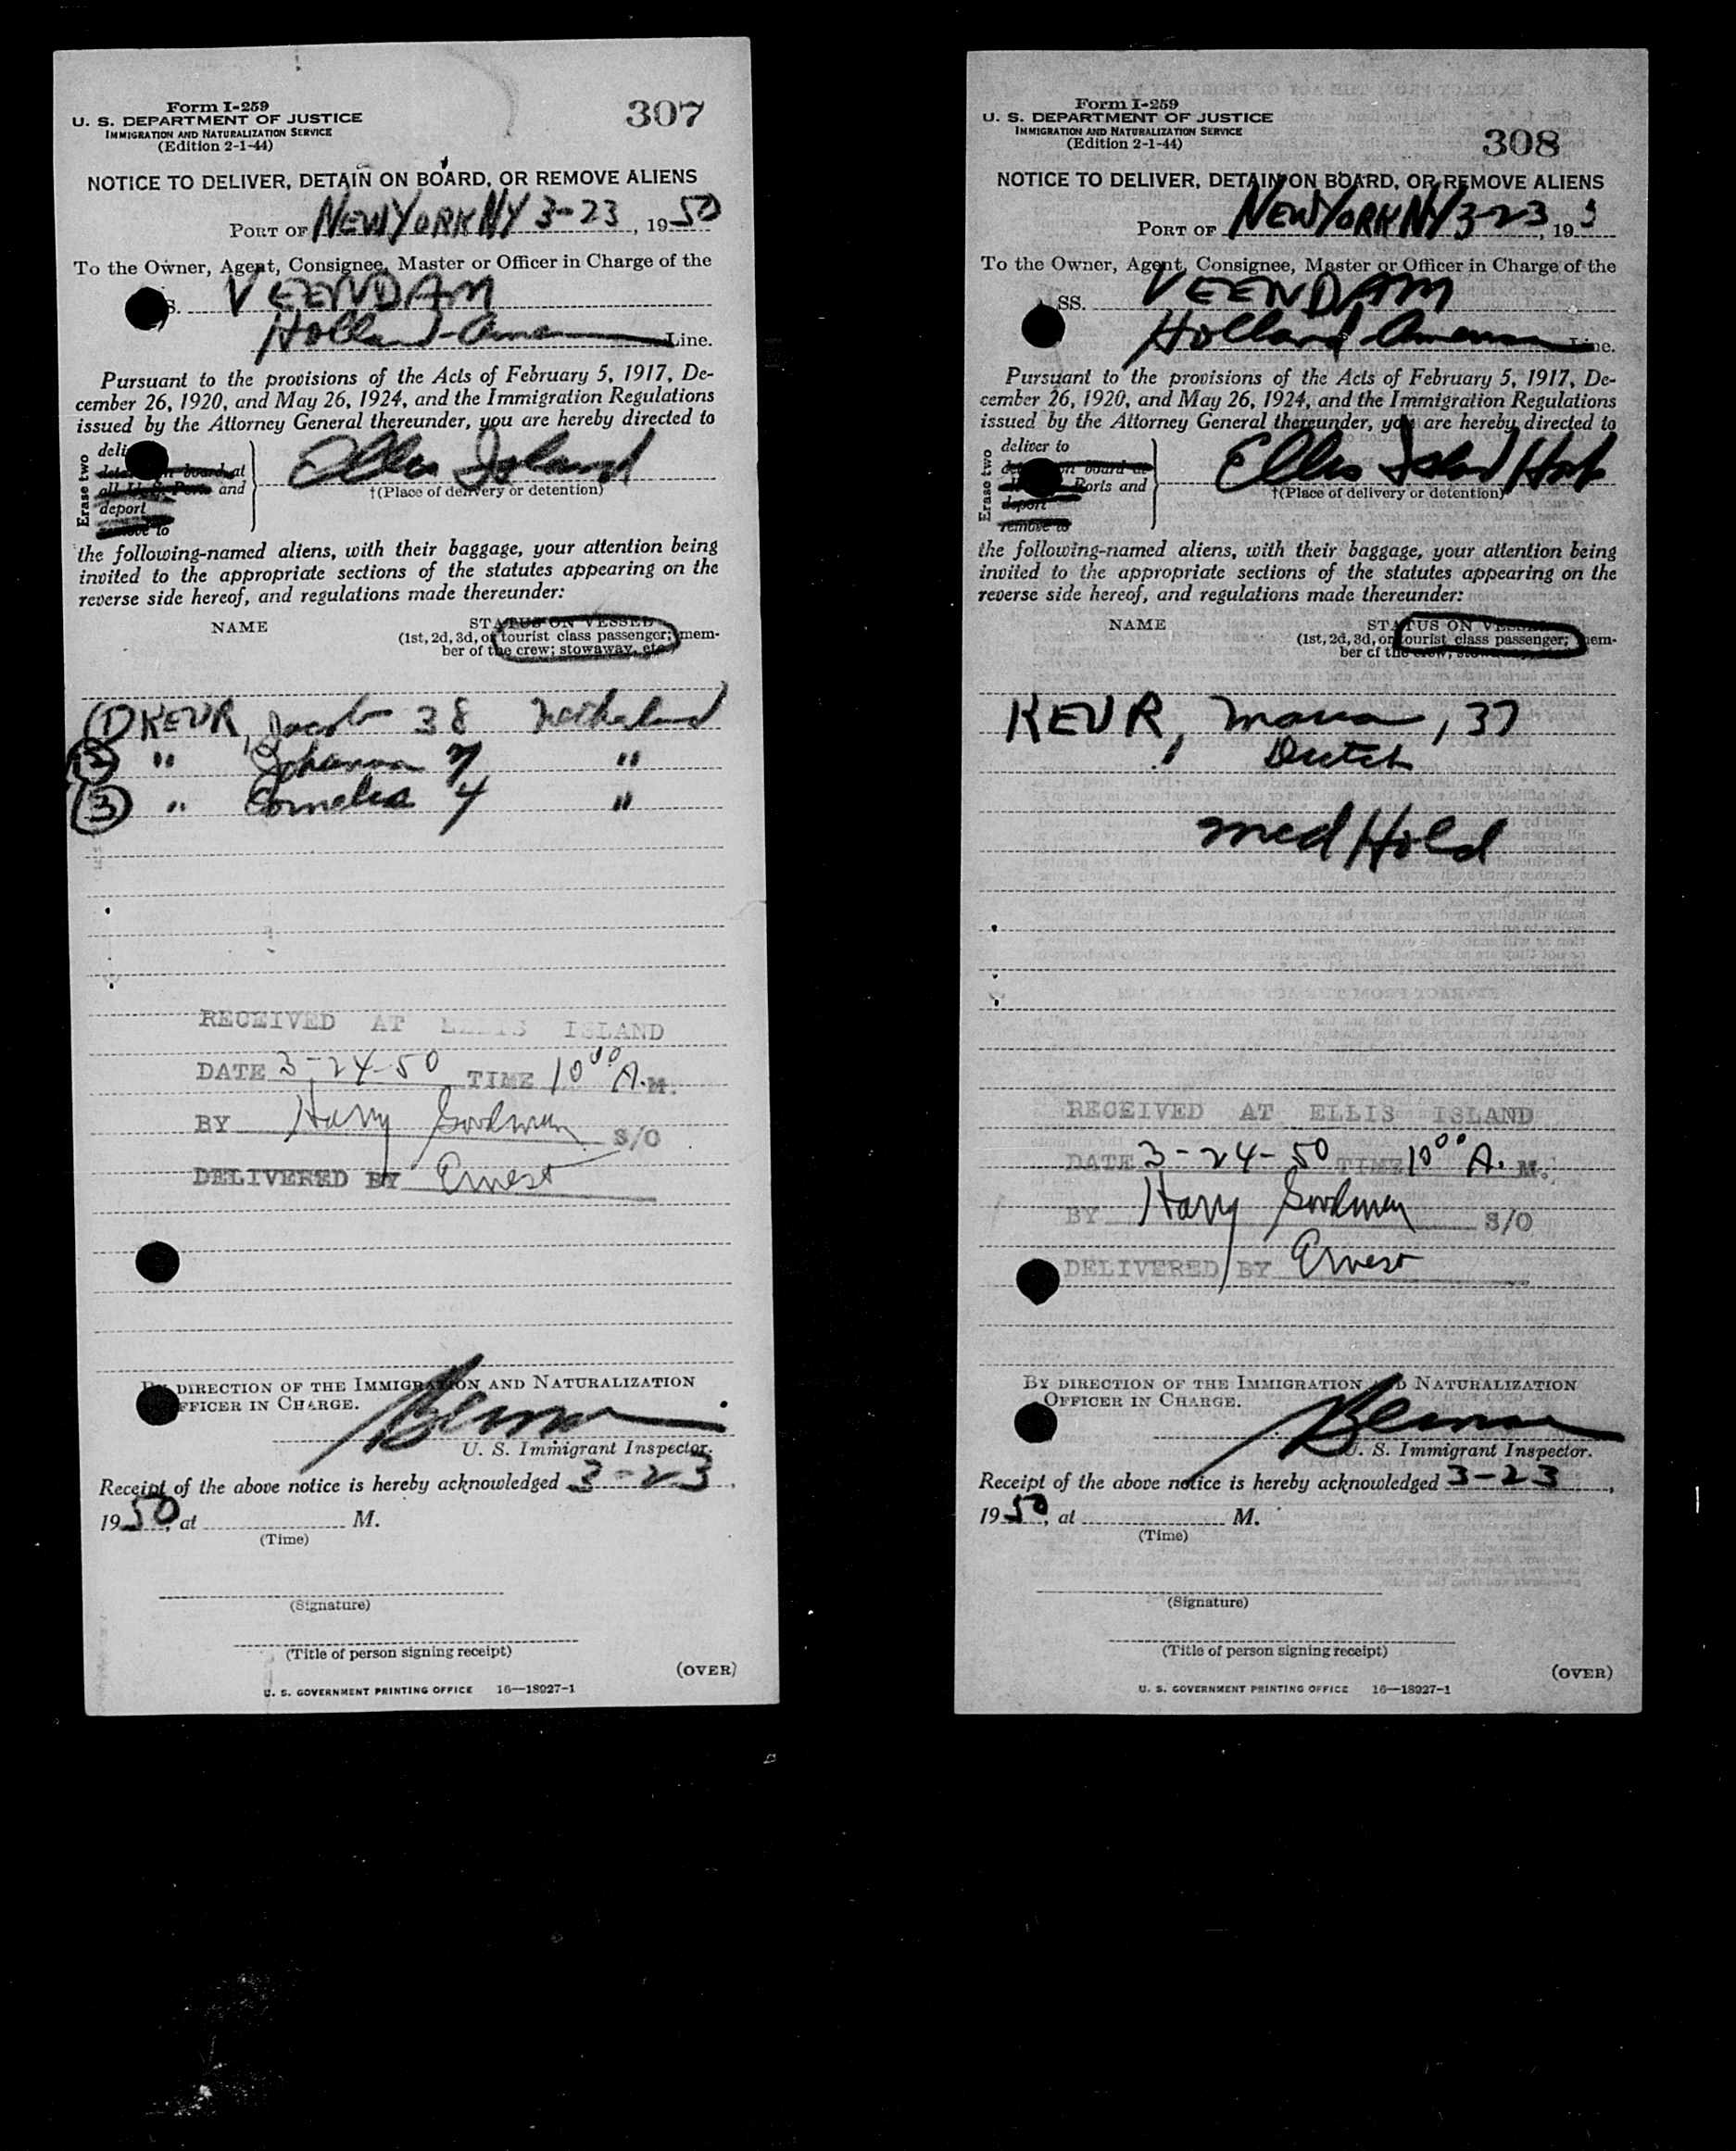 Form I-259
U. S. DEPARTMENT OF JUSTICE
IMMIGRATION AND NATURALIZATION SERVICE
(Edition 2-1-44)
307
NOTICE TO DELIVER, DETAIN ON BOARD, OR REMOVE ALIENS
PORT OF NEW YORK NY 3-23, 1950
To the Owner, Agent, Consignee, Master or Officer in Charge of the
S. VEENDAM
Holland-Amer Line.
Pursuant to the provisions of the Acts of February 5, 1917, De-
cember 26, 1920, and May 26, 1924, and the Immigration Regulations
issued by the Attorney General thereunder, you are hereby directed to
Erase two
deli
on board at
and
deport
to
Ellis Island
†(Place of delivery or detention)
the following-named aliens, with their baggage, your attention being
invited to the appropriate sections of the statutes appearing on the
reverse side hereof, and regulations made thereunder:
NAME
STATUS ON VESSEL
(1st, 2d, 3d, or tourist class passenger; mem-
ber of the crew; stowaway, etc.)
(1) KEUR, Jacob 38 Netherland
(2) " Johanna 7 "
(3) " Cornelia 4 "
RECEIVED AT ELLIS ISLAND
DATE 3-24-50 TIME 10 00 A.M.
BY Harry Goodman S/O
DELIVERED BY Ernest
BY DIRECTION OF THE IMMIGRATION AND NATURALIZATION
OFFICER IN CHARGE.
U. S. Immigrant Inspector.
Receipt of the above notice is hereby acknowledged 3-23,
1950, at M.
(Time)
(Signature)
(Title of person signing receipt)
(OVER)
U. S. GOVERNMENT PRINTING OFFICE 16—18927-1
Form I-259
U. S. DEPARTMENT OF JUSTICE
IMMIGRATION AND NATURALIZATION SERVICE
(Edition 2-1-44)
308
NOTICE TO DELIVER, DETAIN ON BOARD, OR REMOVE ALIENS
PORT OF NEW YORK NY 3-23, 195
To the Owner, Agent, Consignee, Master or Officer in Charge of the
SS. VEENDAM
Holland-American Line.
Pursuant to the provisions of the Acts of February 5, 1917, De-
cember 26, 1920, and May 26, 1924, and the Immigration Regulations
issued by the Attorney General thereunder, you are hereby directed to
Erase two
deliver to
on board at
Ports and
deport
remove to
Ellis Island Hosp
†(Place of delivery or detention)
the following-named aliens, with their baggage, your attention being
invited to the appropriate sections of the statutes appearing on the
reverse side hereof, and regulations made thereunder:
NAME
STATUS ON VESSEL
(1st, 2d, 3d, or tourist class passenger; mem-
ber of the crew;
KEUR, Maria, 37
Dutch
Med Hold
RECEIVED AT ELLIS ISLAND
DATE 3-24-50 TIME 10 00 A. M.
BY Harry Goodman S/O
DELIVERED BY Ernest
BY DIRECTION OF THE IMMIGRATION AND NATURALIZATION
OFFICER IN CHARGE.
U. S. Immigrant Inspector.
Receipt of the above notice is hereby acknowledged 3-23,
1950, at M.
(Time)
(Signature)
(Title of person signing receipt)
(OVER)
U. S. GOVERNMENT PRINTING OFFICE 16—18927-1